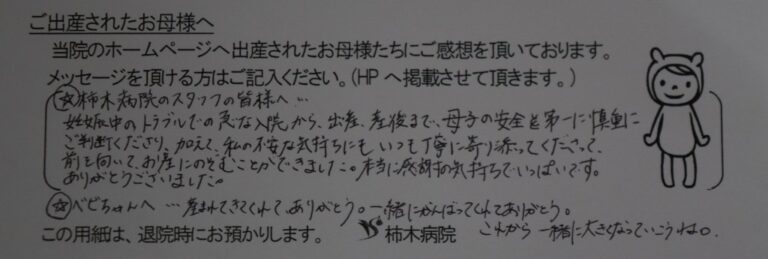 ご出産されたお母様へ
当院のホームページへ出産されたお母様たちにご感想を頂いております。
メッセージを頂ける方はご記入ください。(HPへ掲載させて頂きます。)
☆柿木病院のスタッフの皆様へ…
妊娠中のトラブルでの急な入院から、出産、産後まで、母子の安全を第一に慎重に
ご判断くださり、加えて、私の不安な気持ちにもいつも丁寧に寄り添ってくださって、
前を向いて、お産にのぞむことができました。本当に感謝の気持ちでいっぱいです。
ありがとうございました。
☆ベビちゃんへ…産まれてきてくれて、ありがとう。一緒にがんばってくれてありがとう。
これから一緒に大きくなっていこうね。
この用紙は、退院時にお預かりします。 柿木病院